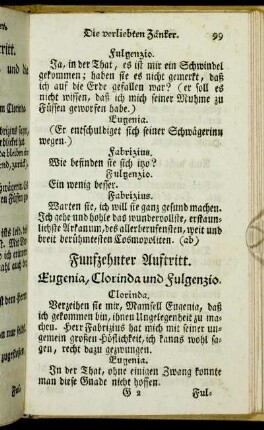 Die verliebten Zänker. 99
Fulgenzio.
Ja, in der That, es ist mir ein Schwindel
gekommen; haben sie es nicht gemerkt, daß
ich auf die Erde gefallen war? (er soll es
nicht wissen, daß ich mich seiner Muhme zu
Füssen geworfen habe.)
Eugenia.
(Er entschuldiget sich seiner Schwägerinn
wegen.)
Fabrizius.
Wie befinden sie sich itzo?
Fulgenzio.
Ein wenig besser.
Fabrizius.
Warten sie, ich will sie ganz gesund machen.
Ich gehe und hohle das wundervollste, erstaun-
lichste Arkanum, des allerberufensten, weit und
breit berühmtesten Cosmopoliten. (ab)
Funfzehnter Auftritt.
Eugenia, Clorinda und Fulgenzio.
Clorinda.
Verzeihen sie mir, Mamsell Eugenia, daß
ich gekommen bin, ihnen Ungelegenheit zu ma-
chen. Herr Fabrizius hat mich mit seiner un-
gemein großen Höflichkeit, ich kanns wohl sa-
gen, recht dazu gezwungen.
Eugenia.
In der That, ohne einigen Zwang konnte
man diese Gnade nicht hoffen.
G 2 Ful-